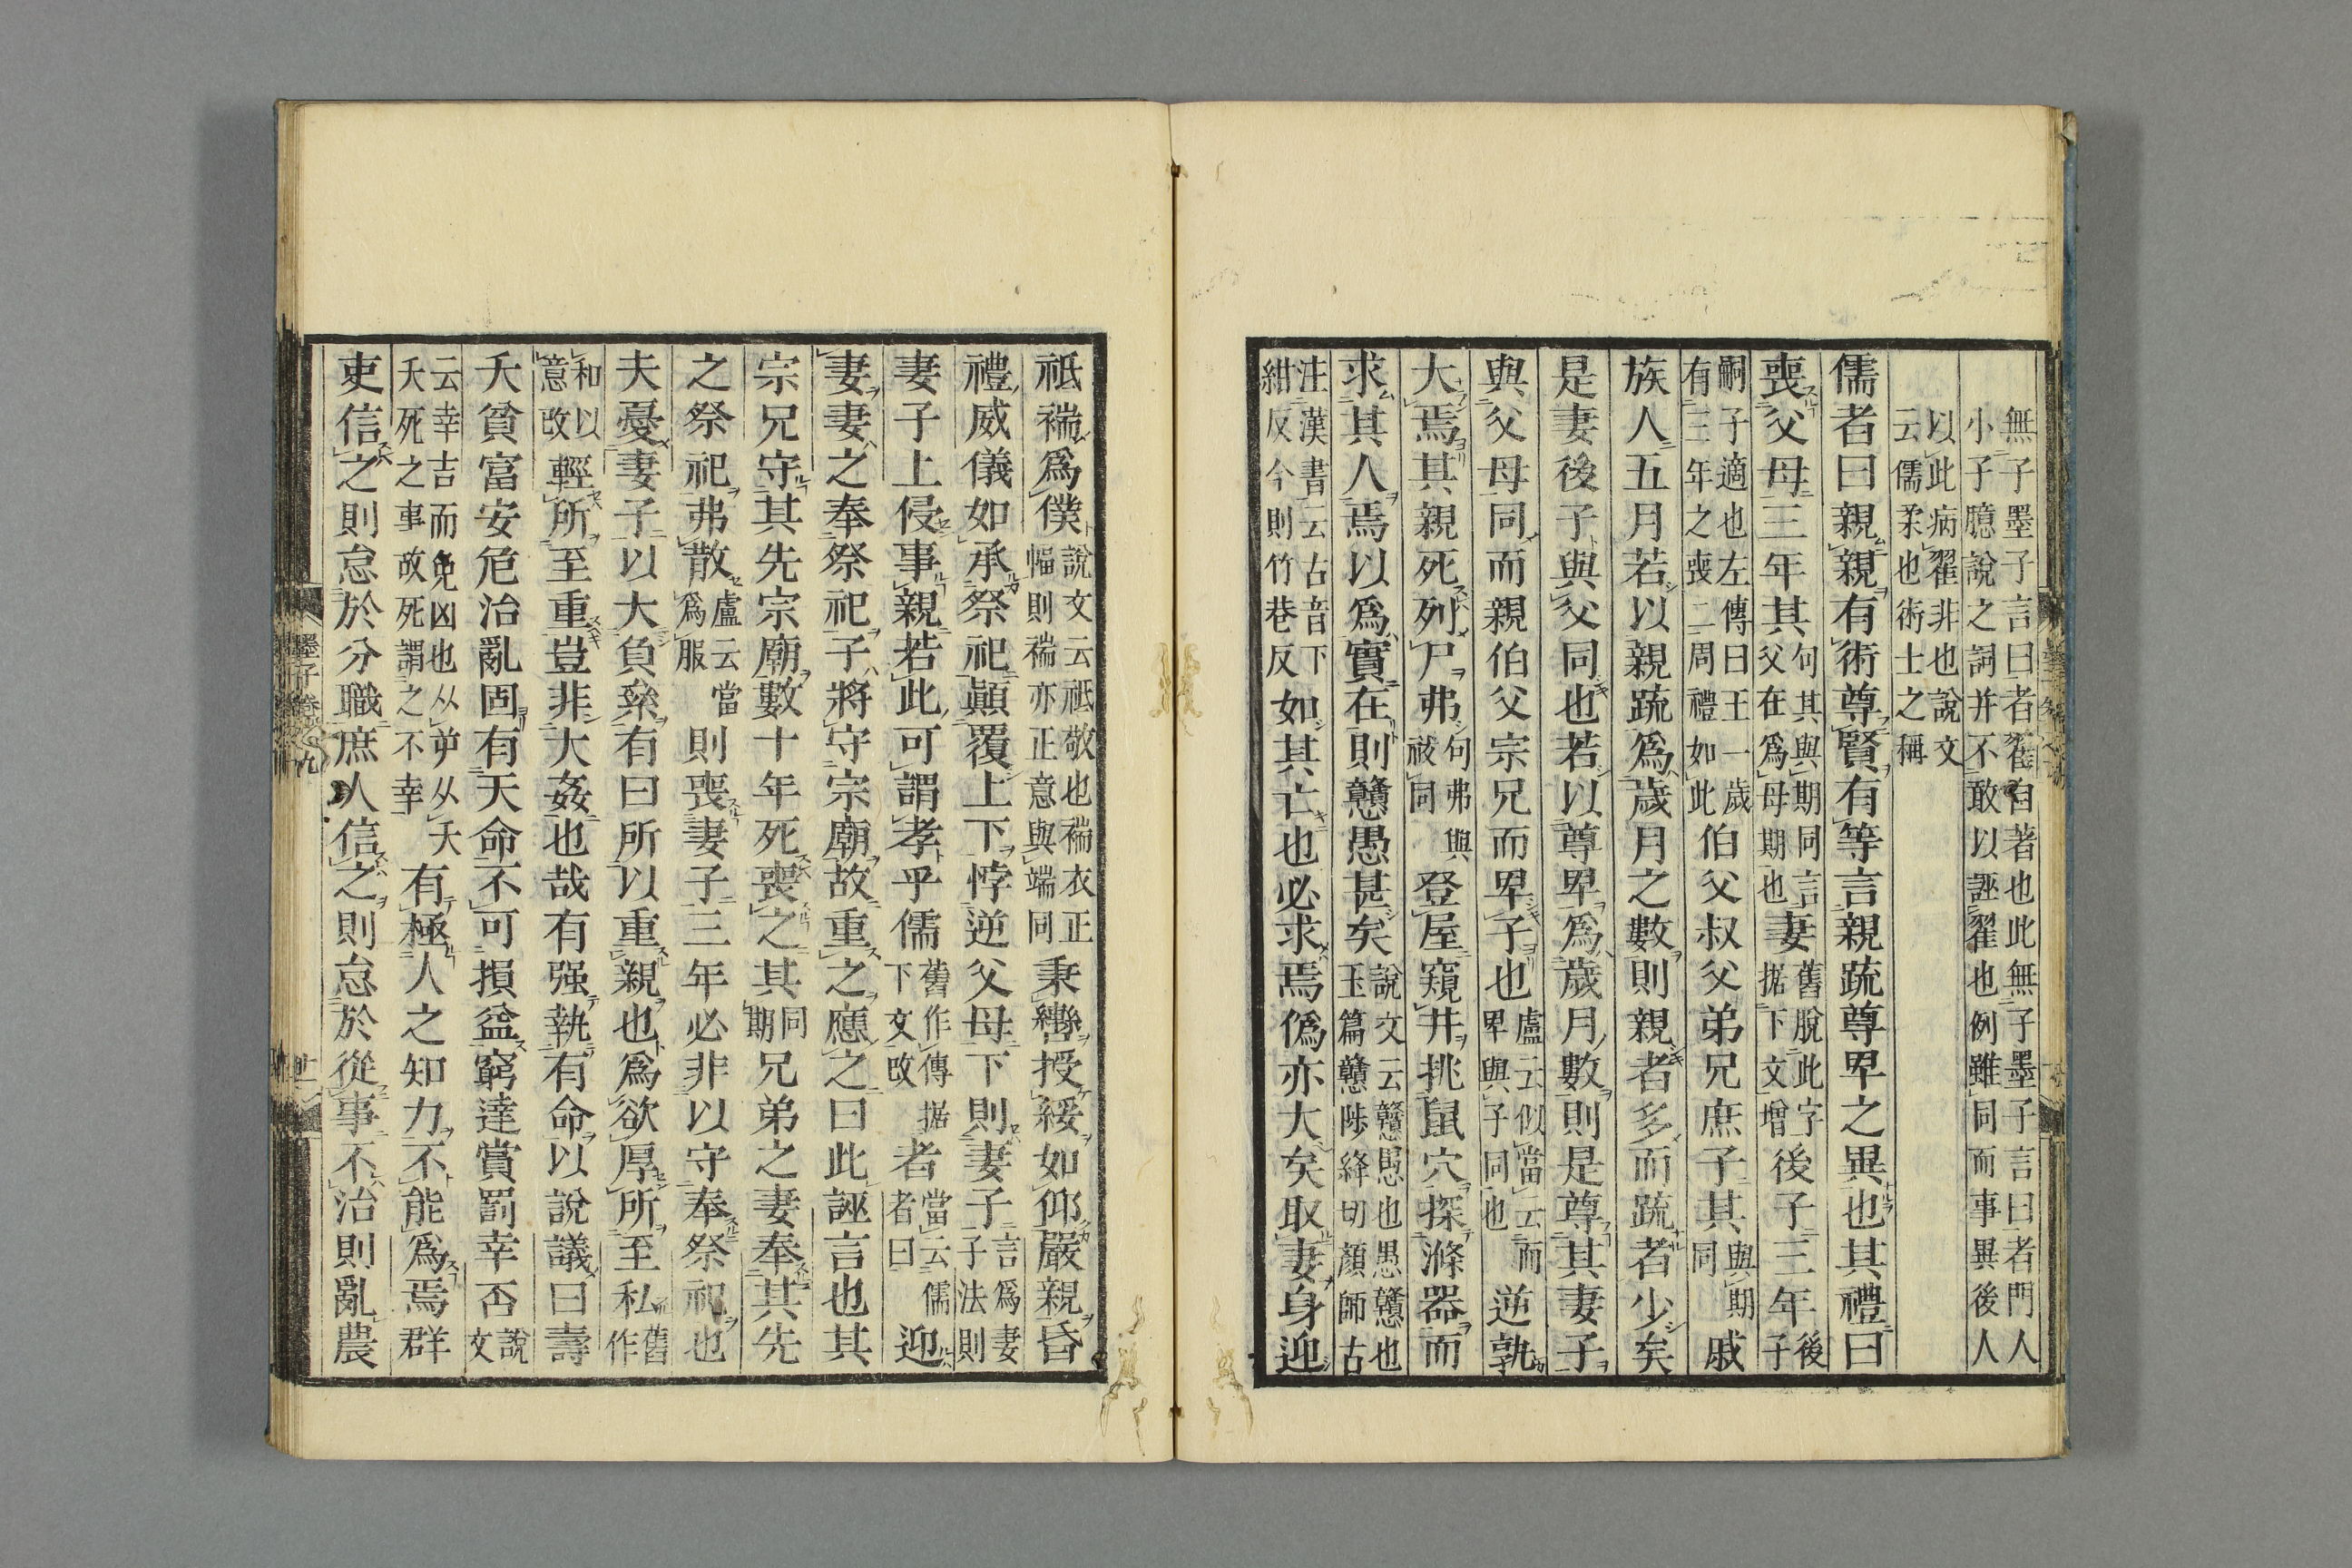 無子墨子言曰者翟自著也此無子墨子言曰者門人
小子臆說之詞并不敢以誣翟也例雖同而事異後人
以此病翟非也說文
云儒柔也術士之稱
儒者曰親親有術尊賢有等言親疏尊卑之異也其禮曰
喪父母三年其句其與期同言父在爲母期也妻舊脫此字据下文增後子三年後子
嗣子適也左傳曰王一歲有三年之喪二周禮如此伯父叔父弟兄庶子其與期同戚
族人五月若以親疏爲歲月之數則親者多而疏者少矣
是妻後子與父同也若以尊卑爲歲月數則是尊其妻子
與父母同而親伯父宗兄而卑子也盧云似當云而卑與子同也逆孰
大焉其親死列尸弗句弗與祓同登屋窺井挑鼠穴探滌器而
求其人焉以爲實在則戇愚甚矣說文云戇愚也愚戇也玉篇戇陟絳切顔師古
注漢書云古音下紺反今則竹巷反如其亡也必求焉僞亦大矣取妻身迎
祗褍爲僕說文云祗敬也褍衣正幅則褍亦正意與端同秉轡授綏如仰嚴親昏
禮威儀如承祭祀顚覆上下悖逆父母下則妻子言爲妻子法則
妻子上侵事親若此可謂孝乎儒舊作傳据下文改者當云儒者曰迎
妻妻之奉祭祀子將守宗廟故重之應之曰此誣言也其
宗兄守其先宗廟數十年死喪之其同期兄弟之妻奉其先
之祭祀弗散盧云當爲服則喪妻子三年必非以守奉祭祀也
夫憂妻子以大負絫有曰所以重親也爲欲厚所至私舊作
和以意改輕所至重豈非大姦也哉有强執有命以說議曰壽
夭貧富安危治亂固有天命不可損益窮達賞罰幸否說文
云幸吉而免凶也从屰从夭夭死之事故死謂之不幸有極人之知力不能爲焉群
吏信之則怠於分職庶人信之則怠於從事不治則亂農
墨子卷之九